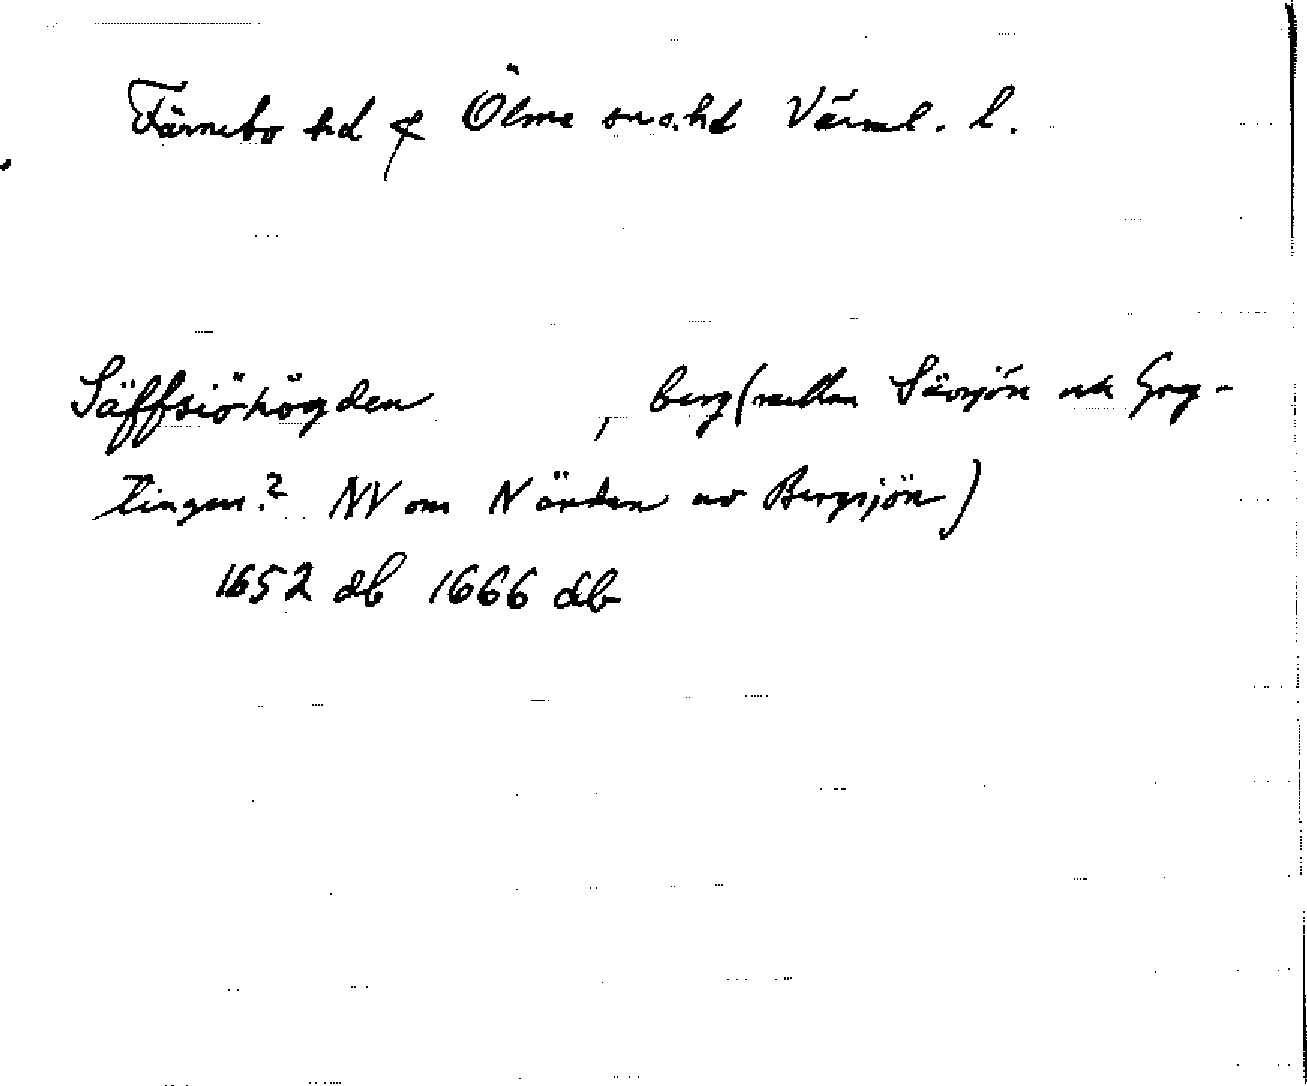 Färnebo hd & Ölme sn o. hd Värml. l.
Säffsiöhögden , berg (mellan Sävsjön och Greg-
lingen? NV om N änden av Bergsjön)
1652 db 1666 db